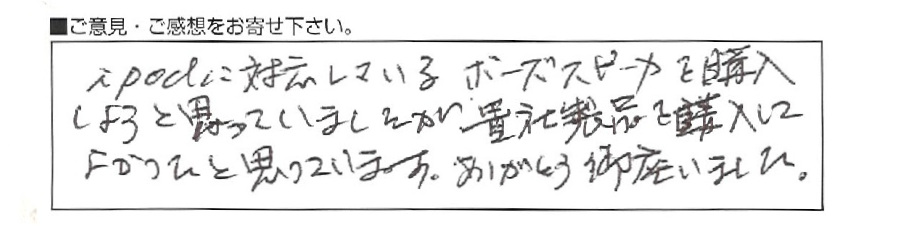 ■ご意見・ご感想をお寄せ下さい。
ipodに対応している ボーズスピーカを購入
しようと思っていましたが 貴社製品を購入して
よかったと思っています。ありがとう御座いました。